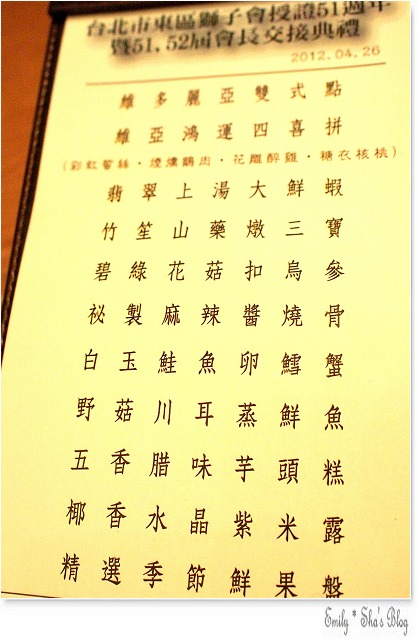 台北市東區獅子會授證51週年
暨51, 52屆會長交接典禮
2012.04.26
維多麗亞雙式點
維亞鴻運四喜拼
(彩虹蜇絲·煙燻鵝肉·花雕醉雞·糖衣核桃)
翡翠上湯大鮮蝦
竹笙山藥燉三寶
碧綠花菇扣烏參
祕製麻辣醬燒骨
白玉鮭魚卵鱈蟹
野菇川耳蒸鮮魚
五香腊味芋頭糕
椰香水晶紫米露
精選季節鮮果盤
Emily * Sha's Blog